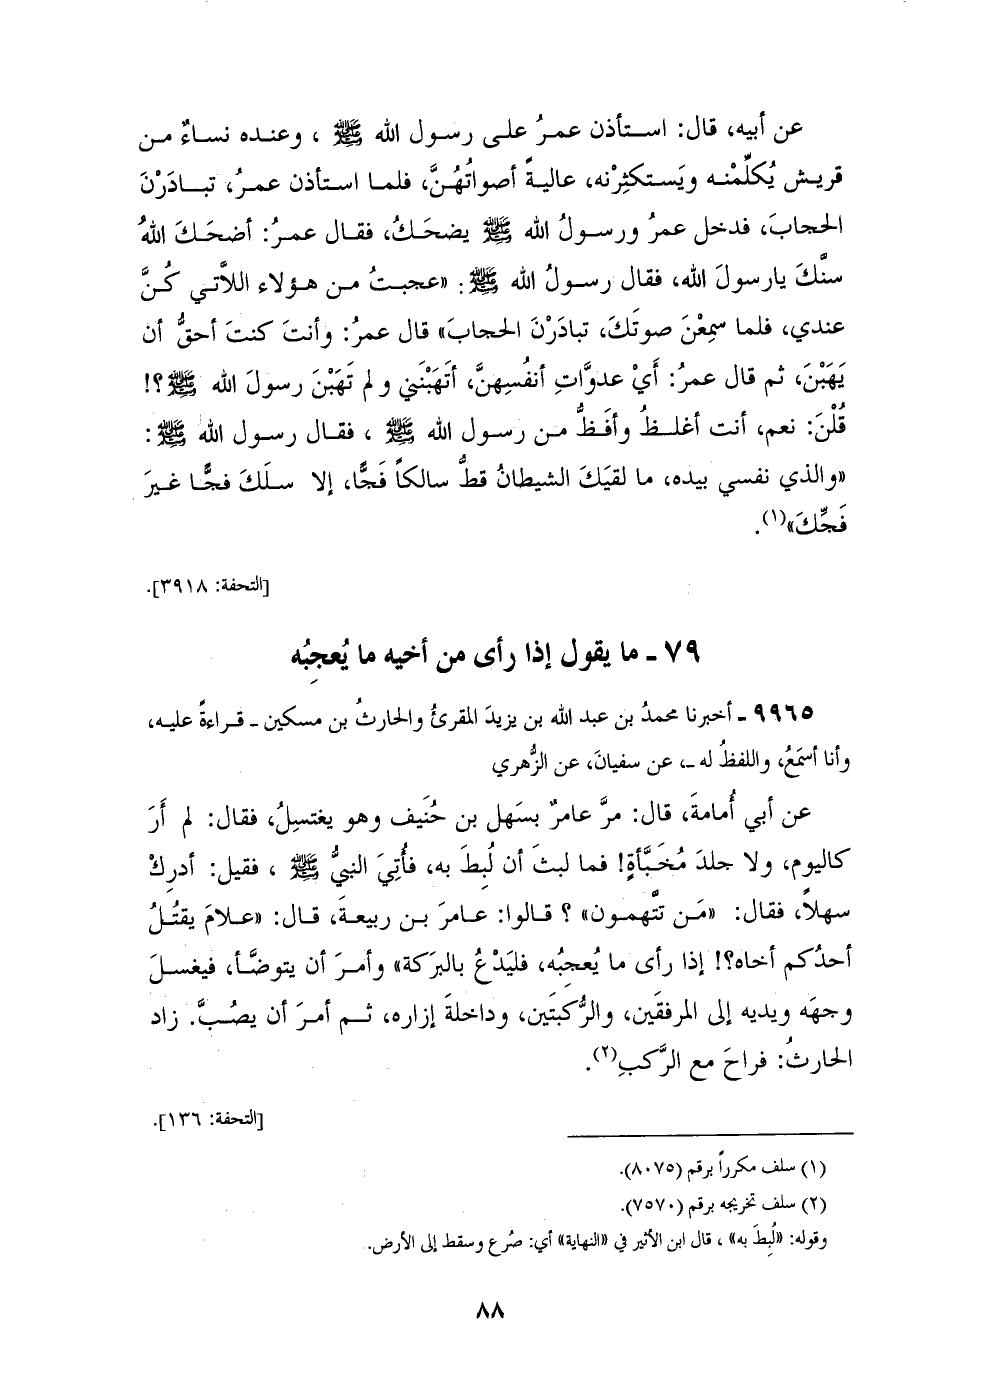 عن أبيه، قال: استأذن عمرُ على رسول الله ﷺ ، وعنده نساءٌ من
قريش يُكلِّمْنه ويَستكثِرْنه، عاليةً أصواتُهُنَّ، فلما استأذن عمرُ، تبادَرْنَ
الحجابَ، فدخل عمرُ ورسولُ الله ﷺ يضحَكُ، فقال عمرُ: أضحَكَ اللهُ
سنَّكَ يارسولَ الله، فقال رسولُ الله ﷺ: «عجبتُ من هؤلاء اللاَّتي كُنَّ
عندي، فلما سمِعْنَ صوتَكَ، تبادَرْنَ الحجابَ» قال عمرُ: وأنتَ كنتَ أحقُّ أن
يَهَبْنَ، ثم قال عمرُ: أَيْ عدوَّاتِ أنفُسِهنَّ، أتَهَبْنَني ولم تَهَبْنَ رسولَ الله ﷺ؟!
قُلْنَ: نعم، أنت أغلظُ وأفَظُّ من رسول الله ﷺ ، فقال رسول الله ﷺ:
«والذي نفسي بيده، ما لقيَكَ الشيطانُ قطُّ سالكاً فَجًّا، إلا سلَكَ فجًّا غيرَ
فَجِّكَ»(١).
[التحفة: ٣٩١٨].
٧٩ ـ ما يقول إذا رأى من أخيه ما يُعجِبُه
٩٩٦٥ ـ أخبرنا محمدُ بن عبد الله بن يزيدَ المقرئُ والحارثُ بن مسكين ـ قراءةً عليه،
وأنا أسمَعُ، واللفظُ له ـ، عن سفيانَ، عن الزُّهري
عن أبي أُمامةَ، قال: مرَّ عامرٌ بسَهل بن حُنَيف وهو يغتسِلُ، فقال: لم أَرَ
كاليوم، ولا جلدَ مُخَبَّأةٍ! فما لبثَ أن لُبِطَ به، فأُتِيَ النبيُّ ﷺ ، فقيل: أدرِكْ
سهلاً، فقال: «مَن تتَّهمون» ؟ قالوا: عامرَ بن ربيعةَ، قال: «علامَ يقتُلُ
أحدُكم أخاه؟! إذا رأى ما يُعجبُه، فليَدْعُ بالبرَكة» وأمرَ أن يتوضَّأَ، فيغسلَ
وجهَه ويديه إلى المرفقَين، والرُّكبتَين، وداخلةَ إزاره، ثم أمرَ أن يصُبَّ. زاد
الحارثُ: فراحَ مع الرَّكبِ(٢).
[التحفة: ١٣٦].
(١) سلف مكرراً برقم (٨٠٧٥).
(٢) سلف تخريجه برقم (٧٥٧٠).
وقوله: «لُبِطَ به» ، قال ابن الأثير في «النهاية» أي: صُرع وسقط إلى الأرض.
٨٨